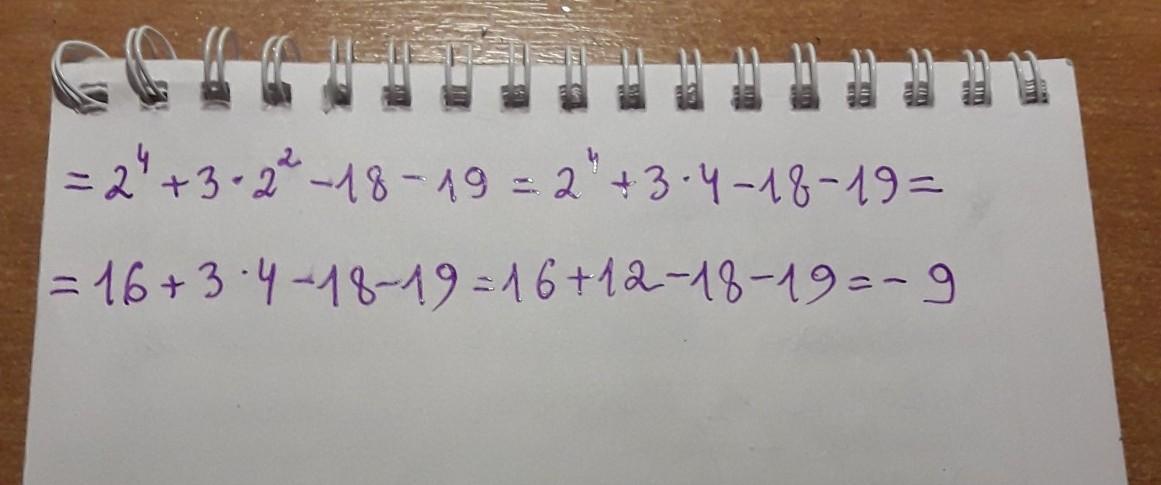 = 2⁴ + 3 · 2² - 18 - 19 = 2⁴ + 3 · 4 - 18 - 19 =
= 16 + 3 · 4 - 18 - 19 = 16 + 12 - 18 - 19 = - 9